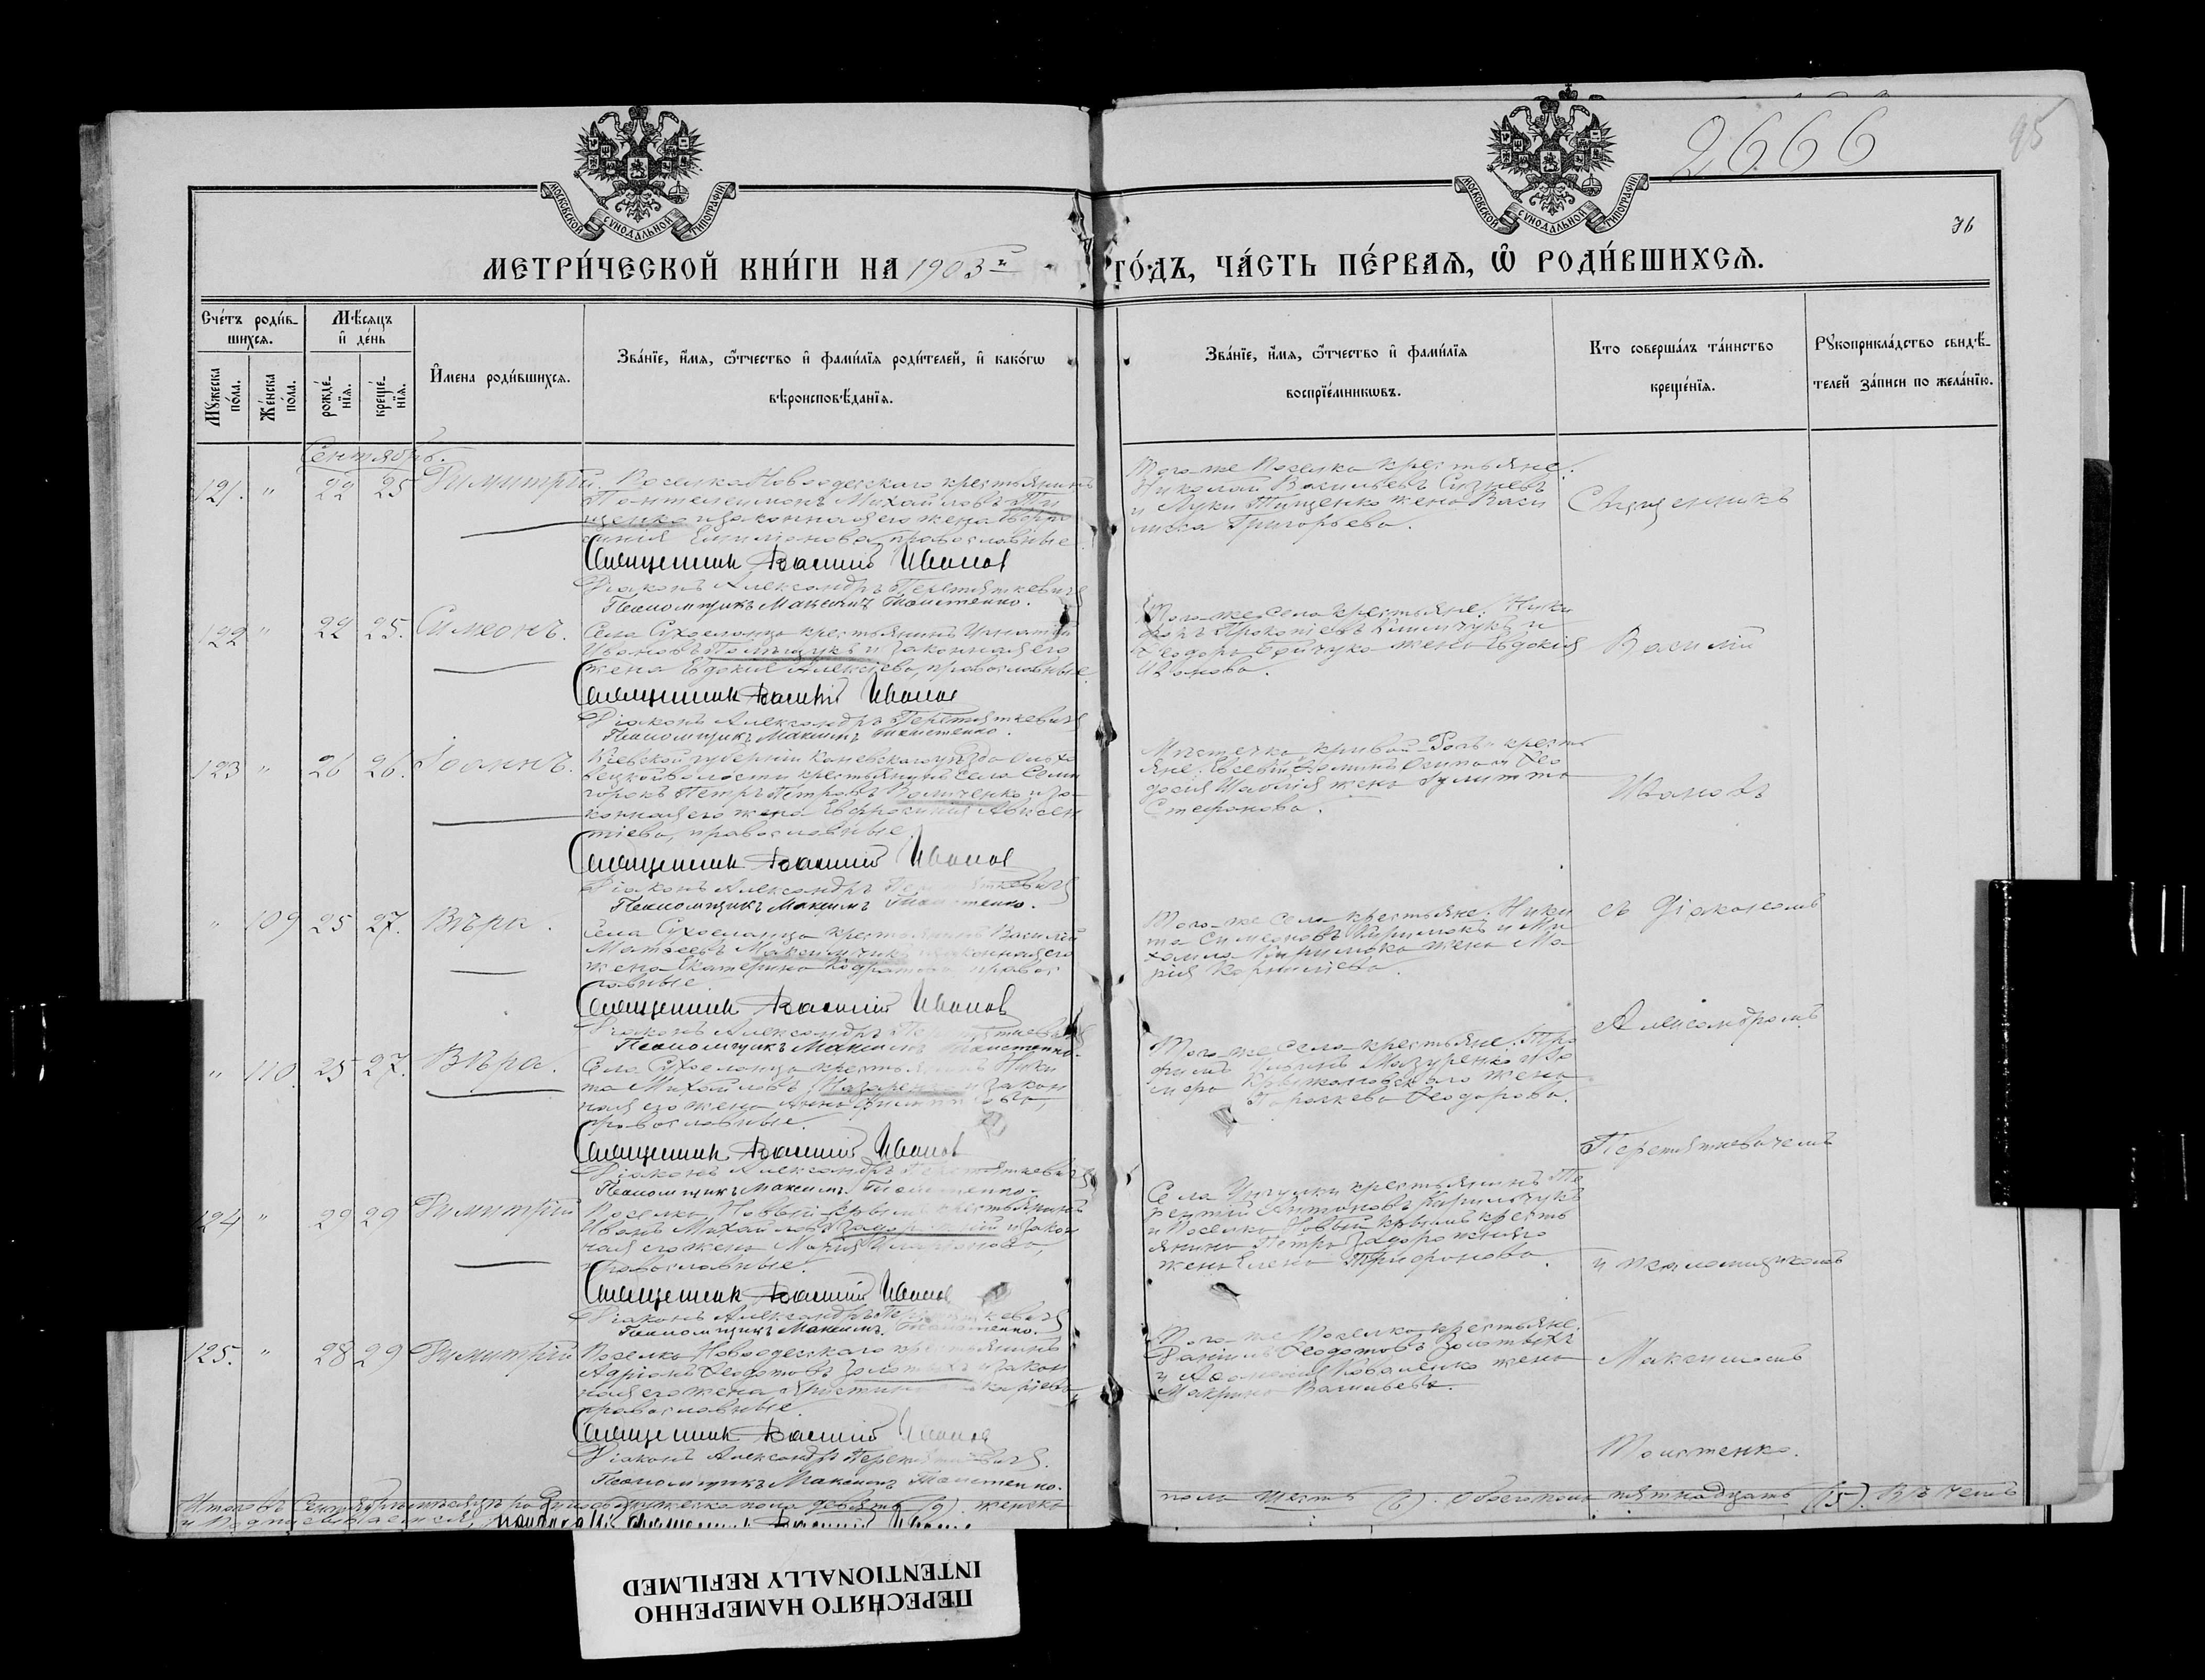 2666
95
МОСКОВСКОЙ СѴНОДАЛЬНОЙ ТИПОГРАФІИ
МОСКОВСКОЙ СѴНОДАЛЬНОЙ ТИПОГРАФІИ
36
МЕТРИ́ЧЕСКОЙ КНИ́ГИ НА 1903й ГО́ДЪ, ЧА́СТЬ ПЕ́РВАѦ, Ѡ҆ РОДИ́ВШИХСѦ.
Сче́тъ роди́в-
шихсѧ.
Мꙋжеска по́ла.
Же́нска по́ла.
Мѣ́сѧцъ
и҆ де́нь
рожде́-
нїѧ.
креще́-
нїѧ.
И҆мена роди́вшихсѧ.
Зва́нїе, и҆́мѧ, ѻ҆́тчество и҆ фами́лїѧ роди́телей, и҆ како́гѡ
вѣроисповѣ́данїѧ.
Зва́нїе, и҆́мѧ, ѻ҆́тчество и҆ фами́лїѧ
воспрїе́мникѡвъ.
Кто соверша́лъ та́инство
креще́нїѧ.
Рꙋкоприкла́дство свидѣ́-
телей за́писи по жела́нїю.
Сентябрь.
121. " 22 25 Димитрій. Поселка Новоодесскаго крестьянинъ
Пантелеимонъ Михайловъ Ти
щенко и законная его жена Евфро
синія Филимонова, православные
Священник Василий Иванов
Діаконъ Александръ Перетяткевичъ
Псаломщикъ Максимъ Толстенко.
Того же поселка крестьяне:
Николай Васильевъ
и Луки Тищенко жена Васи
лиса Григорьева.
Священникъ
122 " 22 25. Симеонъ. Села Сухоеланца крестьянинъ Игнатій
Ивановъ Полищукъ и законная его
жена Евдокія Алексіева, православные
Священник Василий Иванов
Діаконъ Александръ Перетяткевичъ
Псаломщикъ Максимъ Толстенко.
Того же села крестьяне: Ники
форъ Прокопіевъ Климчукъ и
Ѳеодора Бойчука жена Евдокія
Иванова.
Василій
123 " 26 26. Іоаннъ. Кіевской губерніи Каневскаго уѣзда
волости крестьянинъ села Семи
горокъ Петръ Петровъ Величенко и за
конная его жена Евфросинія Авксен
тіева, православные.
Священник Василий Иванов
Діаконъ Александръ Перетяткевичъ
Псаломщикъ Максимъ Толстенко.
Мѣстечка Кривой-Рогъ кресть
яне: Евсевій
жена Іулитта
Стефанова.
Ивановъ
" 109 25 27. Вѣра. Села Сухоеланца крестьянинъ Василій
Матѳеевъ Максимчукъ и законная его
жена Екатерина Кодратова, правос
лавные.
Священник Василий Иванов
Діаконъ Александръ Перетяткевичъ
Псаломщикъ Максимъ Толстенко.
Того же села крестьяне: Ники
та Симеоновъ Кирилюкъ и Ми
хаила Кирилюка жена Ма
рія Корниліева.
съ діакономъ
Александромъ
" 110. 25 27. Вѣра. Села Сухоеланца крестьянинъ Ники
та Михайловъ Назаренко и закон
ная его жена Анна Филиппова,
православные.
Священник Василий Иванов
Діаконъ Александръ Перетяткевичъ
Псаломщикъ Максимъ Толстенко.
Того же села крестьяне: Тро
фимъ Мазуренко и
Крыжановскаго жена
Параскева Ѳеодорова.
Перетяткевичемъ
124 " 29 29 Димитрій Поселка Новый-Крымъ крестьянинъ
Иванъ Михайловъ Задорожній и закон
ная его жена Марія Иларіонова,
православные.
Священник Василий Иванов
Діаконъ Александръ Перетяткевичъ
Псаломщикъ Максимъ Толстенко.
Села крестьянинъ Те
рентій Антоновъ Кирильчукъ
и поселка Новый Крымъ кресть
янина Петра Задорожняго
жена Елена Трифонова.
и псаломщикомъ
125. " 28 29 Димитрій Поселка Новоодесскаго крестьянинъ
Адріанъ Ѳеодотовъ Золотыхъ и закон
ная его жена Христина Макаріева
православные.
Священник Василий Иванов
Діаконъ Александръ Перетяткевичъ.
Псаломщикъ Максимъ Толстенко.
Того же поселка крестьяне:
Даніилъ Ѳеодотовъ Золотыхъ
и Аѳанасія Коваленко жена
Макрина Васильева.
Максимомъ
Толстенко.
Итого въ Сентябрѣ мѣсяцѣ родилось мужеска пола девять (9). женска
пола шесть (6). Обоего пола пятнадцать (15). Въ чемъ
и подписываемся,
ПЕРЕСНЯТО НАМЕРЕННО
INTENTIONALLY REFILMED